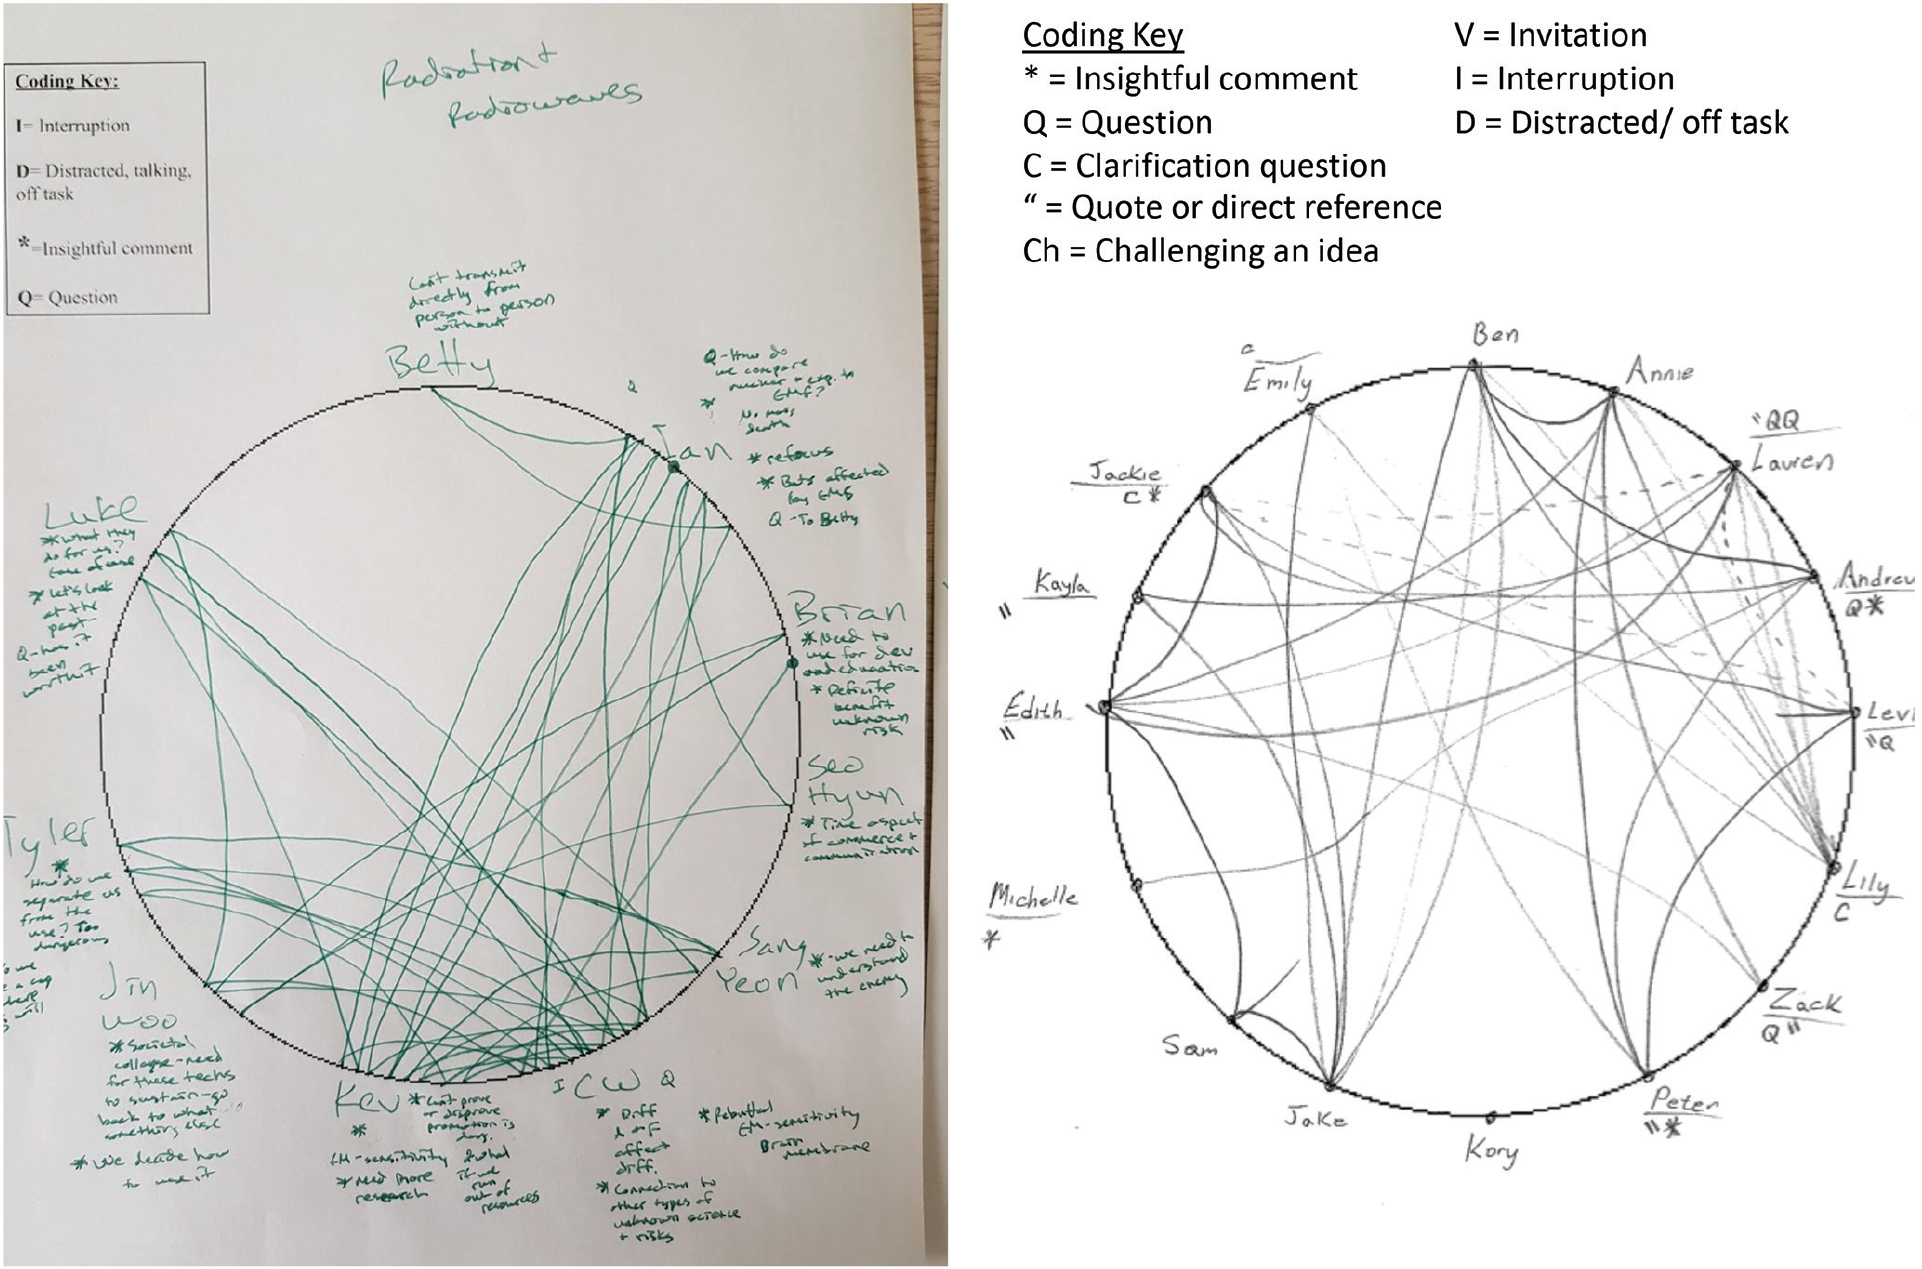 Coding Key:
I= Interruption
D= Distracted, talking,
off task
*=Insightful comment
Q= Question
Radiation +
Radiowaves
Can't transmit
directly from
person to person
without
Betty
Q
I
Ian
Q-How do
we compare
nuclear + exp. to
EMFs?
*
No mass
death
* refocus
* Bats affected
by EMFs
Q - To Betty
Luke
* What they
do for us?
Ease of use
* Let's look
at the
past
Q-has it
been
worth it
Brian
* Need to
use for dev
and education
* Definite
benefit
unknown
risk
Seo
Hyun
* Time aspect
of commerce +
communication
Tyler
*
How do we
separate us
from the
use? Too
dangerous
Sang
Yeon
* - we need to
understand
the enemy
Jin
Woo
* Societal
collapse - need
for these techs
to sustain - go
back to what
something else
* We decide how
to use it
Kev
* Can't prove
or disprove
*
EM-sensitivity
* need more
research
* what
if we
run
out of
resources
I CW Q
* Diff
affect
diff.
* Connection to
other types of
unknown science
+ risks
* Rebuttal
EM-sensitivity
Brain
membrane
Coding Key
* = Insightful comment
Q = Question
C = Clarification question
“ = Quote or direct reference
Ch = Challenging an idea
V = Invitation
I = Interruption
D = Distracted/ off task
Ben
Annie
Emily
"QQ
Lauren
Jackie
C *
Kayla
"
Andrew
Q*
Edith
"
Levi
"Q
Michelle
*
Lily
C
Zack
Q"
Sam
Jake
Kory
Peter
"*